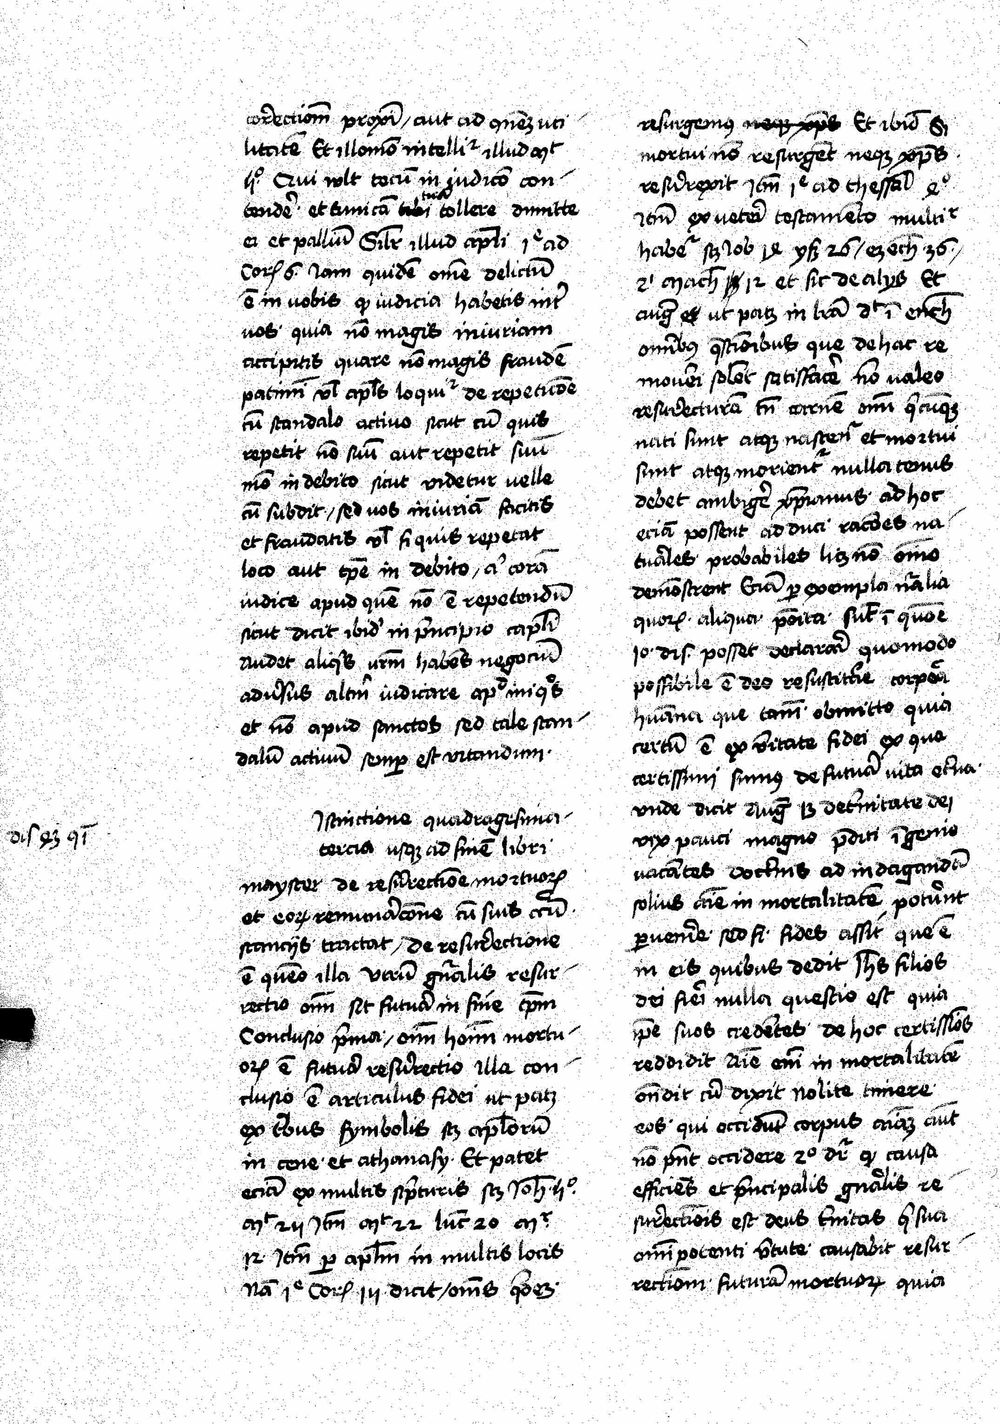 correctiom̄ proxī / aut ad q̄nēȝ uti
litatē Et illo mō intelliʳ illud mᵗ
hͦ Qui wlt tecū in judicō con-
tendeˀ et tunicā tuā tollere dimitte
ei et palliū Silr̄ illud apl̄i 1ᵉ ad
Corꝝ 6 Iam quidē om̄e delictū
ē in uobis qꝫ iudicia habetis int̓
uos quia nō magis iniuriam
accipitis quare nō magis fraudē
patimī ul̄ apl̄s loquiʳ de repeticōe
cū scandalo actiuo sicut cū quis
repetit nō suū aut repetit suū
mō indebito sicut videtur uelle
cū subdit / sed uos iniuriā facitis
et fraudatis ul̄ si quis repetat
loco aut tꝑe in debito / corā
iudice apud quē nō ē repetendū
sicut dicit ibidˀ in pͥncipio capl̄i
Audet aliqͥs vrm̄ habēs negociū
aduˀsus altm̄ iudicare apᵈ iniqͦs
et nō apud sanctos sed tale scan-
dalū actiuū semꝑ est vitandum
dis 43 qī
Istinctione quadragesima
tercia usqꝫ ad finē libri
mayster de resurˀectiōe mortuoꝝ
et eoꝝ remuneracōne cū suis circū
stancijs tractat / de resurˀectione
ē q̄stio illa Utrū gn̄alis resur-
rectio om̄ sit futurˀa in fine tꝑm
Conclusio pͥma / om̄ hoīm mortu-
oꝝ ē futurˀa resurˀectio Illa con-
clusio ē articulus fidei ut patȝ
ex tribus symbolis sȝ apl̄orū
in cene et athanasy Et patet
eciā ex multis scͥpturis sȝ Joh̄ hͦ
mᵗ 24 Itm̄ mᵗ 22 luc̄ 20 mʳ
12 Itm̄ ꝑ apl̄m in multis locis
Nā 1ᵉ Corꝝ 15 dicit / om̄s qͥdeȝ
resurgemꝰ Et ibid̄ Si
mortui nō resurgēt neqꝫ xp̄s
resurˀexit Itm̄ 1ᵉ ad thessal̄ 4ͦ
Itm̄ ex veterˀi testamēto multiʳ
habeʳ sȝ Iob 19 ysa 26 / eȝech 36 /
2ͥ mach̄ 12 et sic de alijs Et
auḡ ut patȝ in lrā dᵗ ī ench̄
omībꝰ q̄stiōibus que de hac re
moueri solēt satisfacerˀe nō valeo
resurˀecturā tn̄ carnē om̄ qͥcūqꝫ
nati sunt atqꝫ nascenʳ et mortui
sunt atqꝫ morientʳ nullatenus
debet ambigerˀe xp̄ianus ad hoc
eciā possent adduci racōes na-
turˀales probabiles licȝ nō om̄o
demōstrent Eciā ꝑ exempla nr̄alia
quoꝝ aliqua pōita sūt ī q̄ōne
10 dis posset declarari quomodo
possibile ē deo resuscitarˀe corpora
humana que tamē obmitto quia
certū ē ex vˀitate fidei ex qua
certissimi sumꝰ de futurˀa vita et̓na
vnde dicit Auḡ 13 de tˀnitate dei
vix pauci magno p̄diti īgenio
vacantes doctˀnis ad indagandā
solius aīe inmortalitatē potuˀunt
ꝑuenirˀe sed si fides assit que ē
in eis quibus dedit Jh̄s filios
dei fieri nulla questio est quia
ip̄e suos credētes de hoc certissīos
reddidit Aīe em̄ inmortalitatē
on̄dit cū dixit nolite timere
eos qui occidunt corpus aīaȝ aut
nō pn̄t occidere 2ͦ dʳ qꝫ causa
efficiēs et pͥncipalis gn̄alis re-
surˀectiōis est deus tˀnitas qͥ sua
om̄ipotenti vˀtute causabit resur-
rectiom̄ futurā mortuoꝝ quia